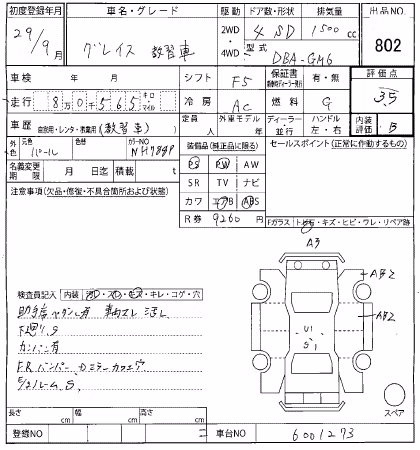 初度登録年月 車名・グレード 駆動 ドア数・形状 排気量 出品NO.
29/9月 グレイス 教習車 2WD・4WD 4 SD 1500cc 802
型式 DBA-GM6
車検 年 月 シフト F5 保証書 有・無 評価点
走行 8万0千565 キロ マイル 冷房 AC 燃料 G 3.5
車歴 自家用・レンタ・積載用 (教習車) 定員 人 外車モデル 年 ディーラー・並行 ハンドル 左・右 内装評価 B
外色 元色 パール 色替 カラーNO NH788P 装備品 (純正品に限る) セールスポイント (正常に作動するもの)
名義変更期限 月 日迄 積載 t PS PW AW
注意事項 (欠品・修復・不具合箇所および状態) SR TV ナビ
カワ エアB ABS
R券 9260円 Fガラス トビ石・キズ・ヒビ・ワレ・リペア跡
A3
A登2
A登2
U1
S1
検査員記入 内装 ヨゴレ・スレ・キズ・キレ・コゲ・穴
助手席ペダル有
下廻りS
カンバン有
FRバンパー
S
スペア
長さ cm 幅 cm 高さ cm
登録NO 車台NO 6001273